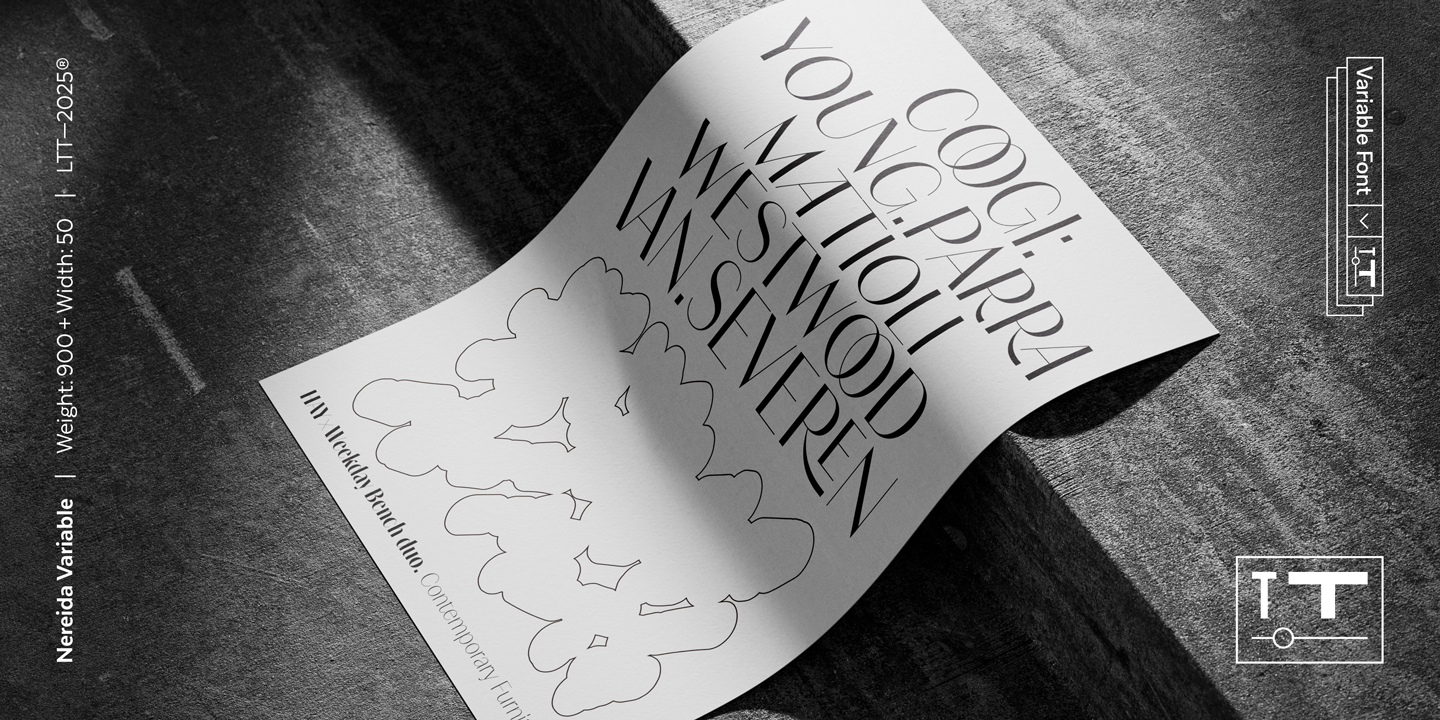 Nereida Variable | Weight: 900 + Width: 50 | LTT—2025®
COOGI.
YOUNG.PARRA
MATTIOLI
WESTWOOD
VAN.SEVEREN
HAY x Weekday Bench duo. Contemporary Furni
Variable Font
TT
TT